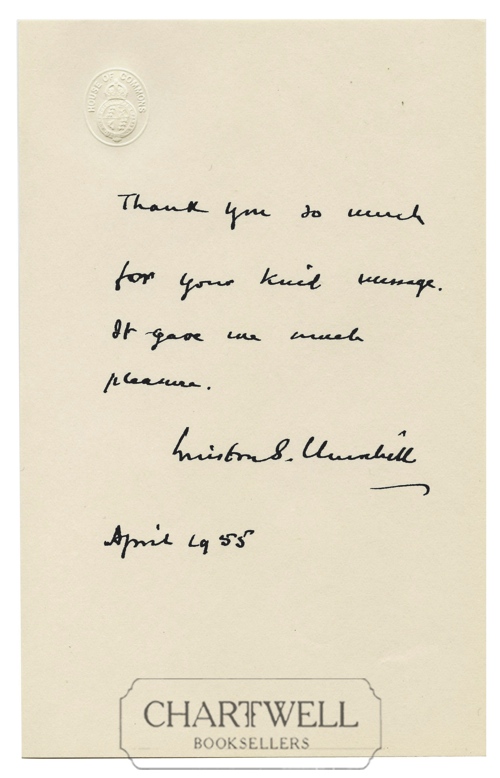 HOUSE OF COMMONS
Thank you so much
for your kind message.
It gave me much
pleasure.
Winston S. Churchill
April 1955
CHARTWELL
BOOKSELLERS